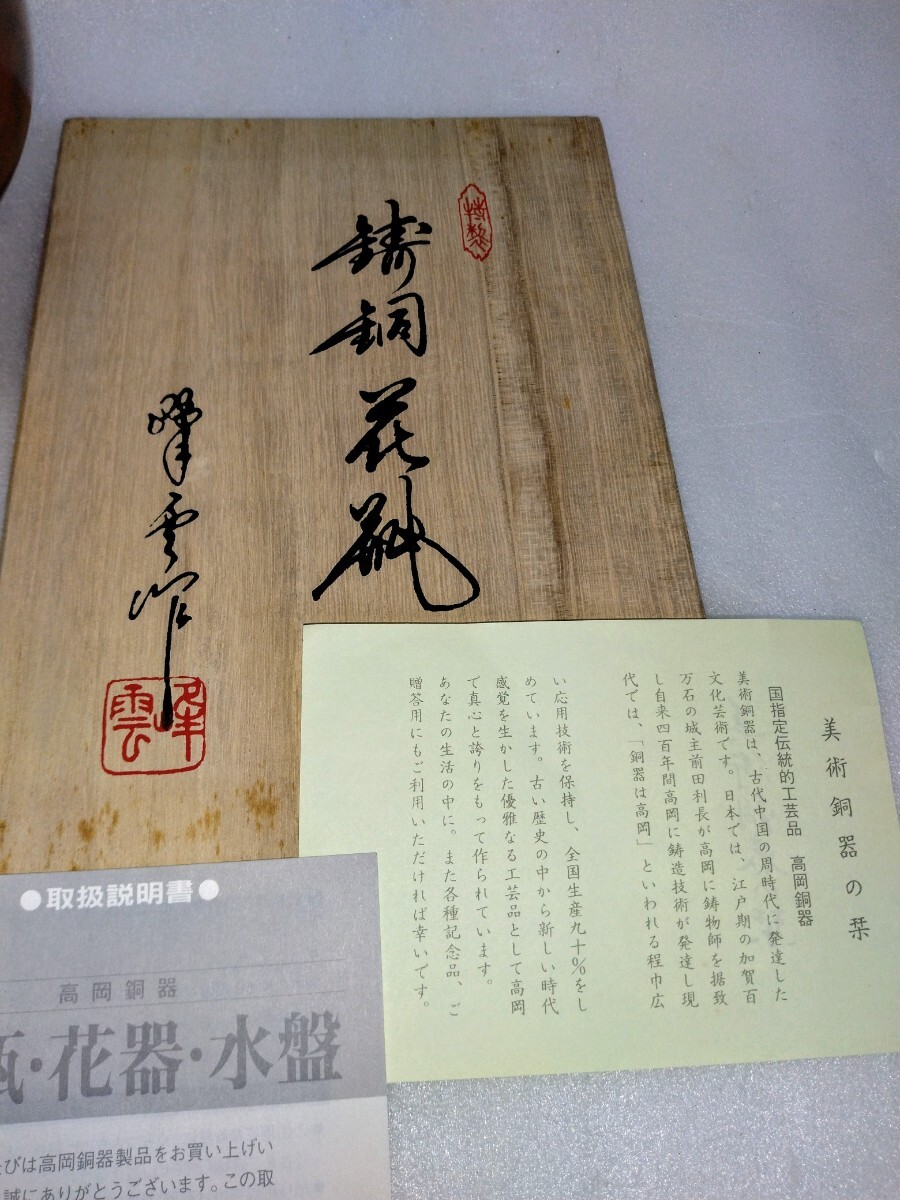 特製
鋳銅花瓶
峰雲作
峰雲
美術銅器の栞
国指定伝統的工芸品 高岡銅器
美術銅器は、古代中国の周時代に発達した
文化芸術です。日本では、江戸期の加賀百
万石の城主前田利長が高岡に鋳物師を据致
し自来四百年間高岡に鋳造技術が発達し現
代では、「銅器は高岡」といわれる程巾広
い応用技術を保持し、全国生産九十%をし
めています。古い歴史の中から新しい時代
感覚を生かした優雅なる工芸品として高岡
で真心と誇りをもって作られています。
あなたの生活の中に。また各種記念品、ご
贈答用にもご利用いただければ幸いです。
●取扱説明書●
高岡銅器
瓶・花器・水盤
たびは高岡銅器製品をお買い上げい
誠にありがとうございます。この取